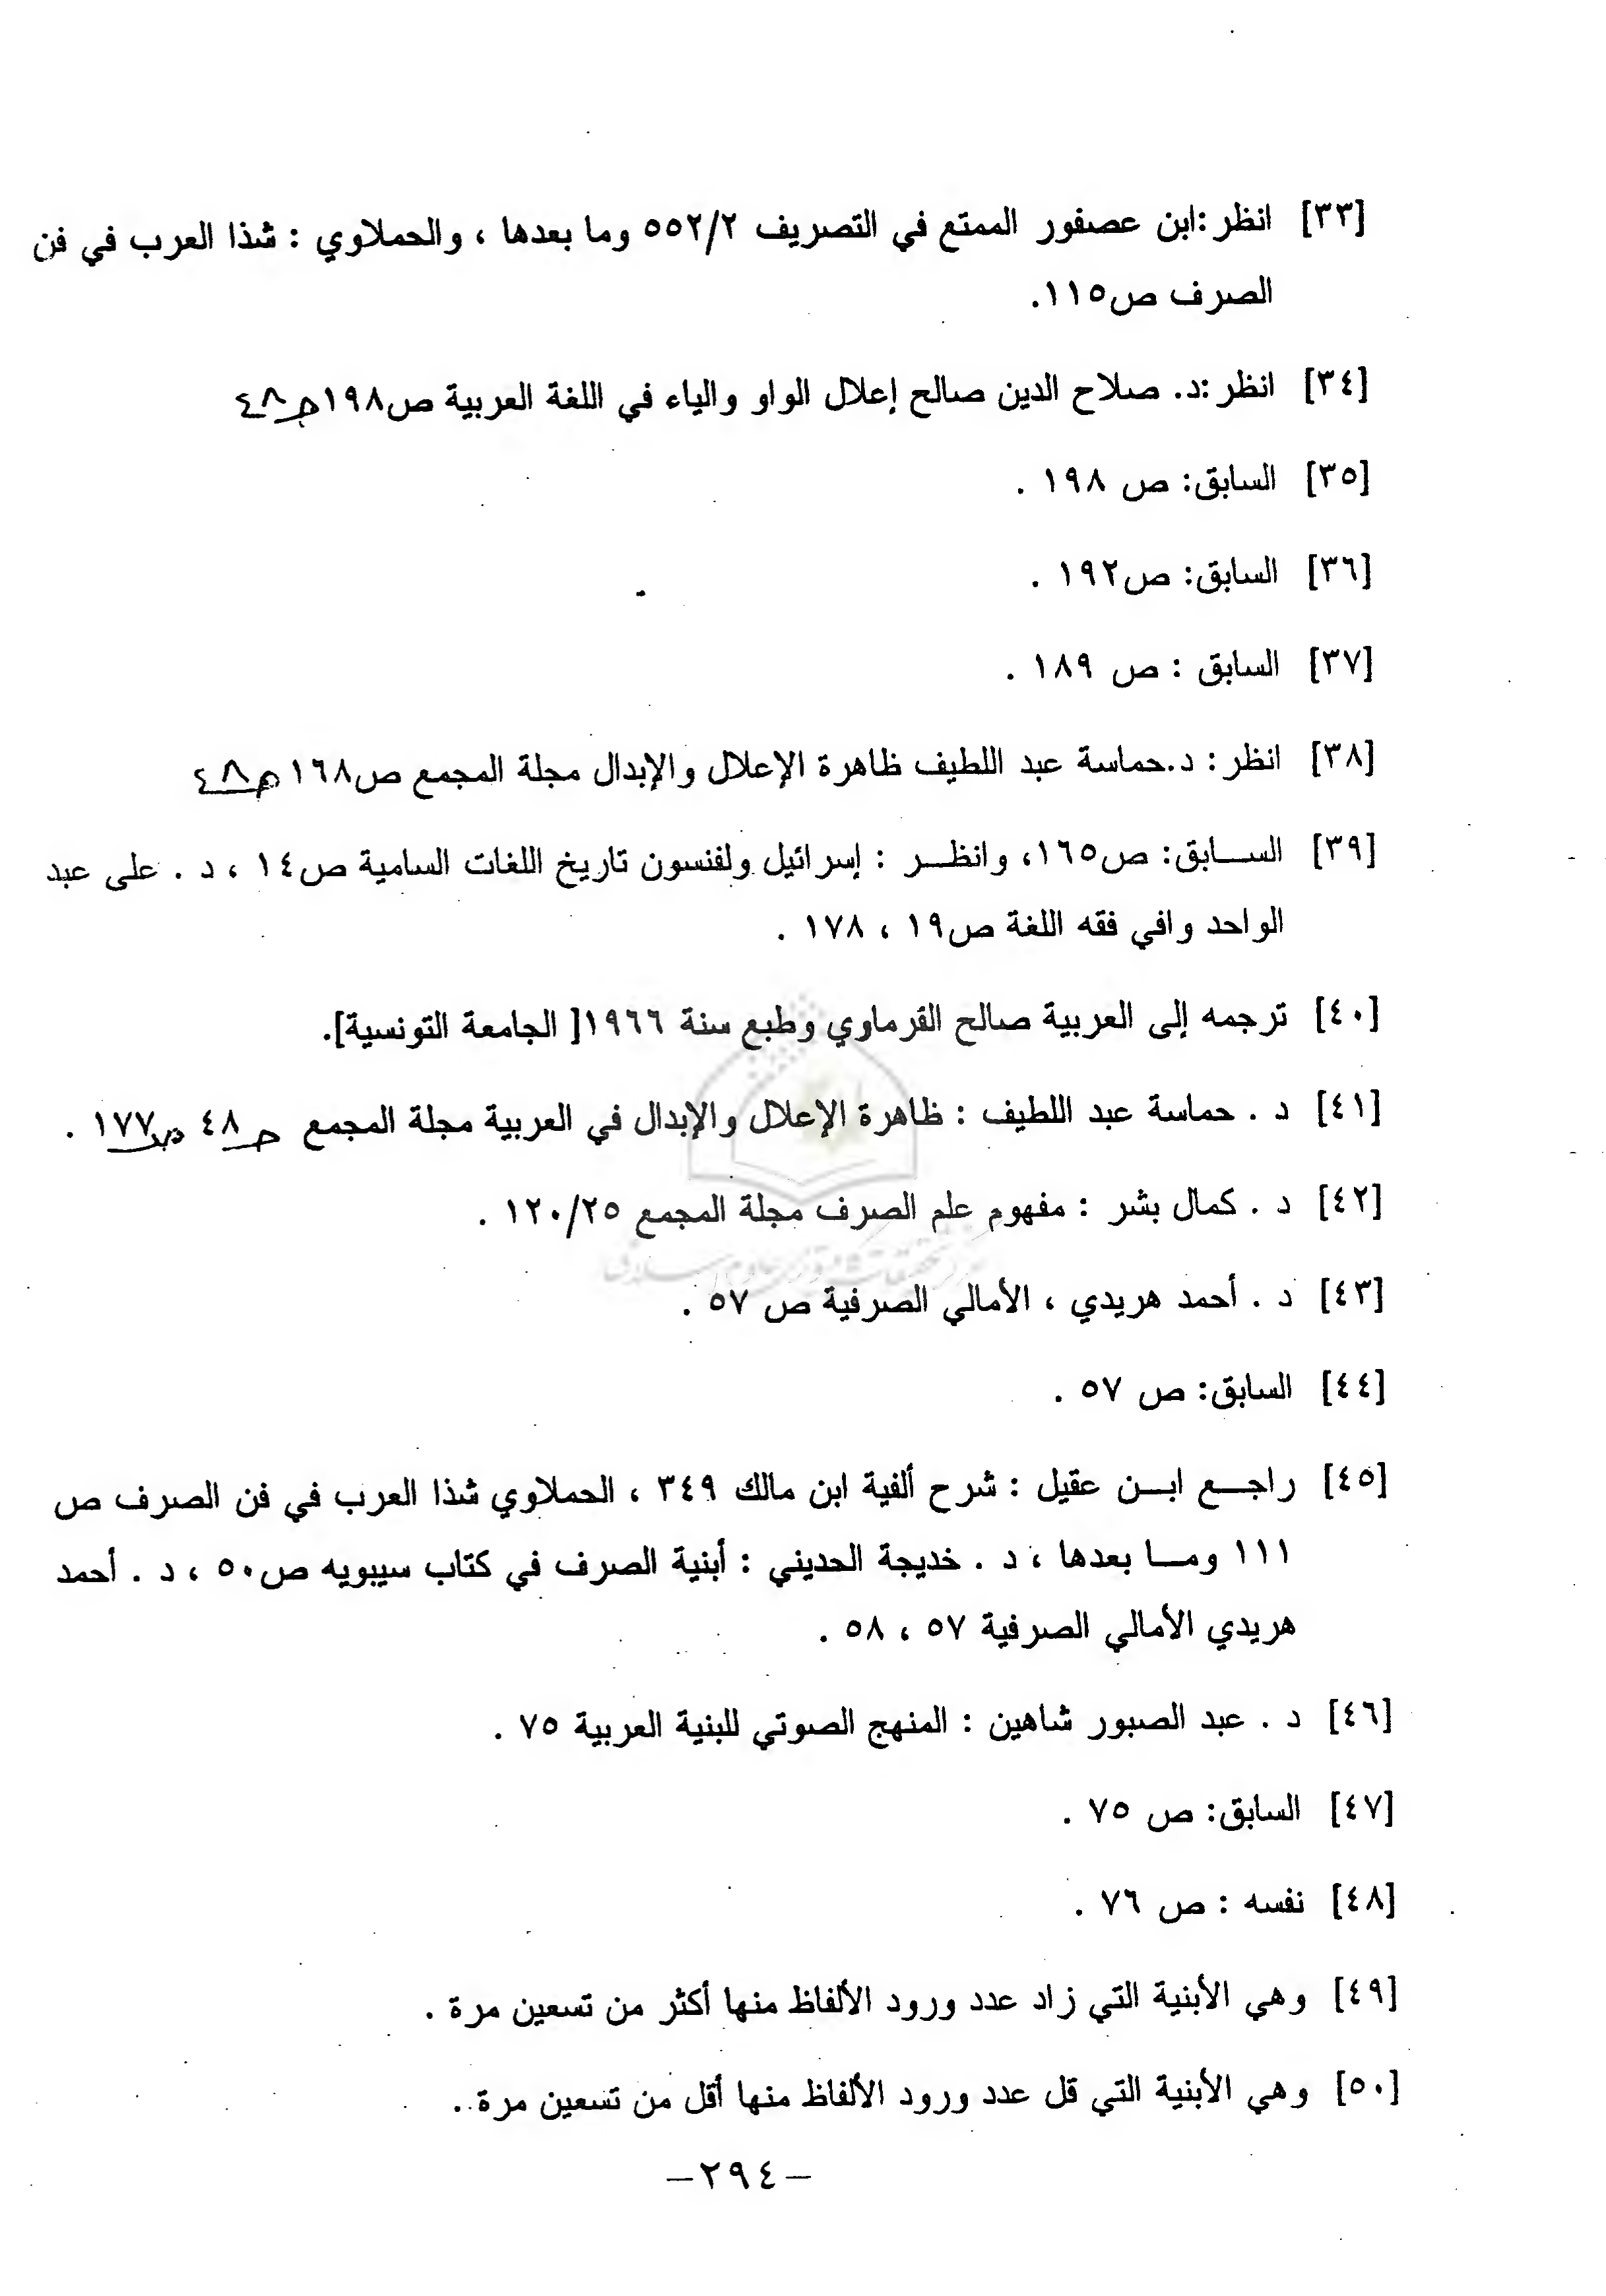 [٣٣] انظر :ابن عصفور الممتع في التصريف ٥٥٢/٢ وما بعدها ، والحملاوي : شذا العرب في فن
الصرف ص١١٥.
[٣٤] انظر :د. صلاح الدين صالح إعلال الواو والياء في اللغة العربية ص١٩٨ حـ ٤٨
[٣٥] السابق: ص ١٩٨ .
[٣٦] السابق: ص١٩٢ .
[٣٧] السابق : ص ١٨٩ .
[٣٨] انظر : د.حماسة عبد اللطيف ظاهرة الإعلال والإبدال مجلة المجمع ص١٦٨ حـ ٤٨
[٣٩] الســابق: ص١٦٥، وانظــر : إسرائيل ولفنسون تاريخ اللغات السامية ص١٤ ، د . على عبد
الواحد وافي فقه اللغة ص١٩ ، ١٧٨ .
[٤٠] ترجمه إلى العربية صالح القرماوي وطبع سنة ١٩٦٦[ الجامعة التونسية].
[٤١] د . حماسة عبد اللطيف : ظاهرة الإعلال والإبدال في العربية مجلة المجمع حـ ٤٨ ص ١٧٧ .
[٤٢] د . كمال بشر : مفهوم علم الصرف مجلة المجمع ١٢٠/٢٥ .
[٤٣] د . أحمد هريدي ، الأمالي الصرفية ص ٥٧ .
[٤٤] السابق: ص ٥٧ .
[٤٥] راجــع ابــن عقيل : شرح ألفية ابن مالك ٣٤٩ ، الحملاوي شذا العرب في فن الصرف ص
١١١ ومــا بعدها ، د . خديجة الحديني : أبنية الصرف في كتاب سيبويه ص٥٠ ، د . أحمد
هريدي الأمالي الصرفية ٥٧ ، ٥٨ .
[٤٦] د . عبد الصبور شاهين : المنهج الصوتي للبنية العربية ٧٥ .
[٤٧] السابق: ص ٧٥ .
[٤٨] نفسه : ص ٧٦ .
[٤٩] وهي الأبنية التي زاد عدد ورود الألفاظ منها أكثر من تسعين مرة .
[٥٠] وهي الأبنية التي قل عدد ورود الألفاظ منها أقل من تسعين مرة .
–٢٩٤–